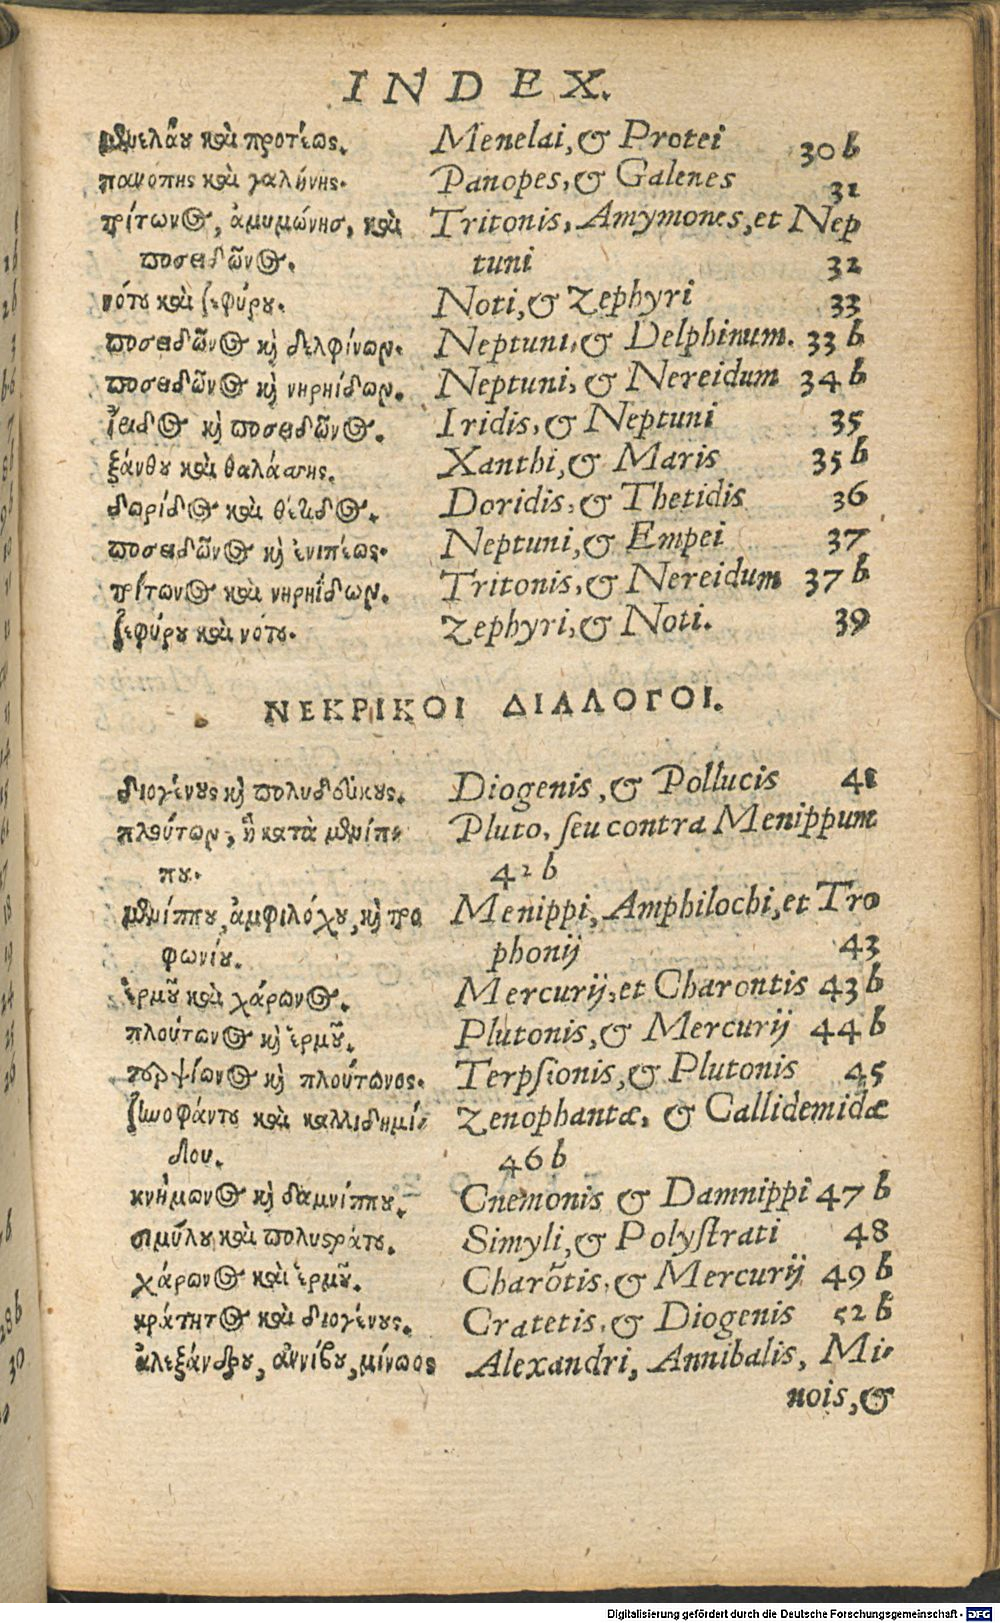 INDEX.
μενελάου καὶ πρωτέως. Menelai, & Protei 30 b
πανόπης καὶ γαλήνης. Panopes, & Galenes 31
τρίτωνος, ἀμυμώνησ, καὶ Tritonis, Amymones, et Nep
ποσειδῶνος. tuni 32
νότου καὶ ζεφύρου. Noti, & Zephyri 33
ποσειδῶνος κὶ δελφίνων. Neptuni, & Delphinum. 33 b
ποσειδῶνος κὶ νηρηίδων. Neptuni, & Nereidum 34 b
ἴριδος κὶ ποσειδῶνος. Iridis, & Neptuni 35
ξάνθου καὶ θαλάσσης. Xanthi, & Maris 35 b
δωρίδος καὶ θέτιδος. Doridis, & Thetidis 36
ποσειδῶνος κὶ ἐνιπέως. Neptuni, & Empei 37
τρίτωνος καὶ νηρηΐδων. Tritonis, & Nereidum 37 b
ζεφύρου καὶ νότου. Zephyri, & Noti. 39
ΝΕΚΡΙΚΟΙ ΔΙΑΛΟΓΟΙ.
διογένους κὶ πολυδεύκους. Diogenis, & Pollucis 41
πλούτων, ἢ κατὰ μενίπ- Pluto, seu contra Menippum
που. 42 b
μενίππου, ἀμφιλόχου, κὶ τρο Menippi, Amphilochi, et Tro
φωνίου. phonij 43
ἑρμοῦ καὶ χάρωνος. Mercurij, et Charontis 43 b
πλούτωνος κὶ ἑρμοῦ. Plutonis, & Mercurij 44 b
τερψίωνος κὶ πλούτωνος. Terpsionis, & Plutonis 45
ζηνοφάντου καὶ καλλιδημί- Zenophantæ, & Callidemidæ
δου. 46 b
κνήμωνος κὶ δαμνίππου. Cnemonis & Damnippi 47 b
σιμύλου καὶ πολυστράτου. Simyli, & Polystrati 48
χάρωνος καὶ ἑρμοῦ. Charōtis, & Mercurij 49 b
κράτητος καὶ διογένους. Cratetis, & Diogenis 52 b
ἀλεξάνδρου, ἀννίβου, μίνωος Alexandri, Annibalis, Mi-
nois, &
Digitalisierung gefördert durch die Deutsche Forschungsgemeinschaft - DFG